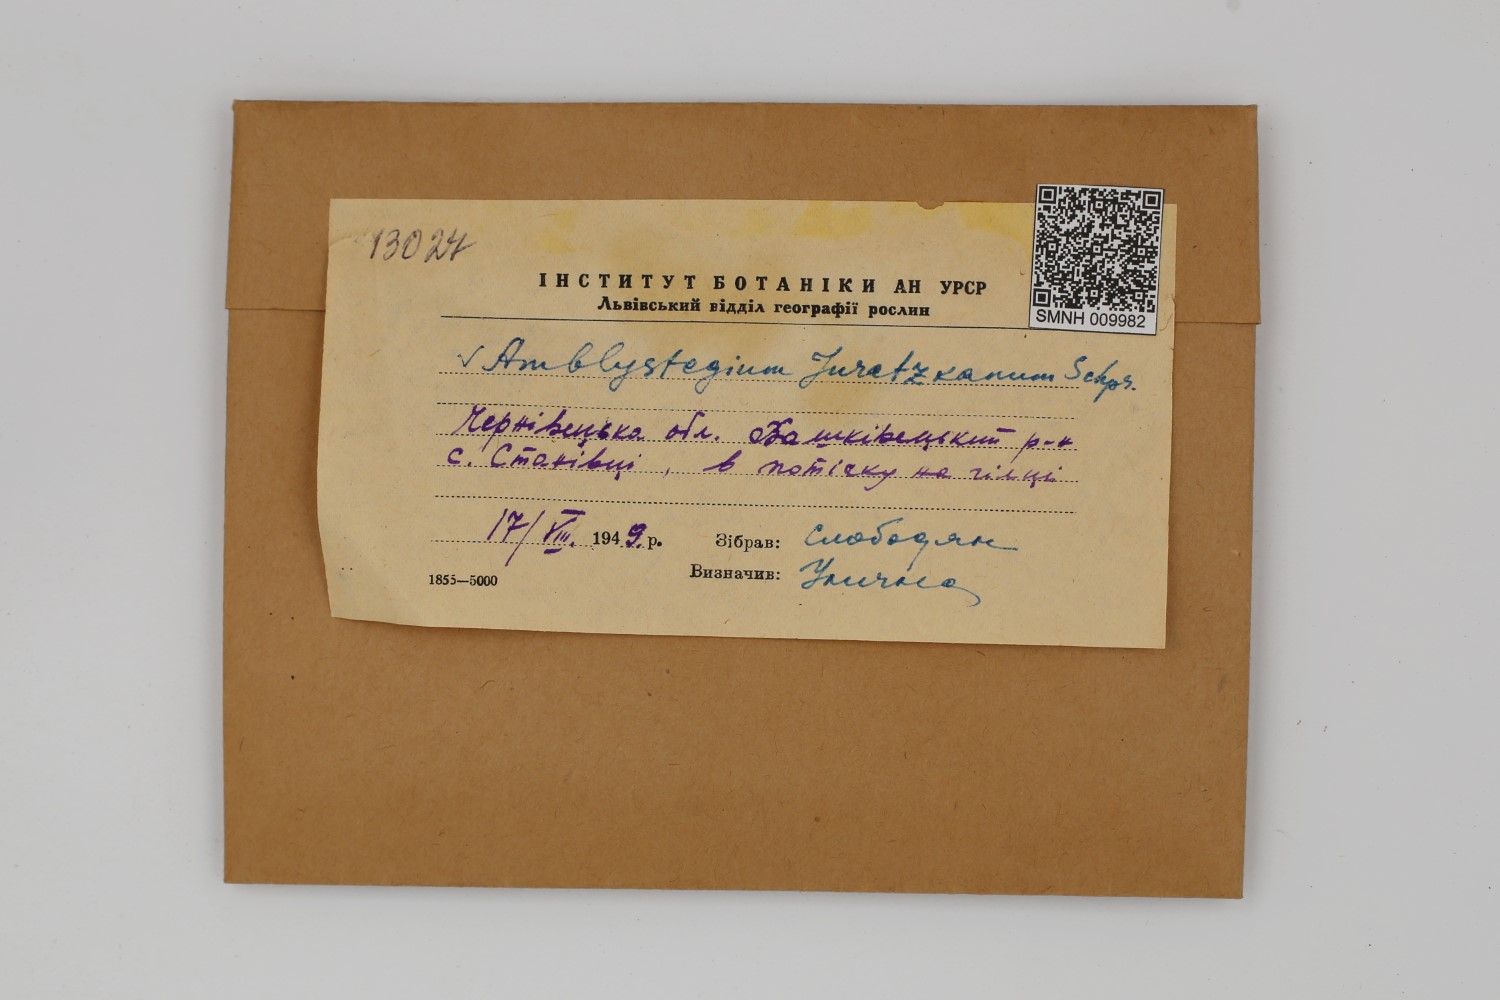 13027
ІНСТИТУТ БОТАНІКИ АН УРСР
Львівський відділ географії рослин
SMNH 009982
✓ Amblystegium Juratzkanum Schpr.
Чернівецька обл. Вашківецький р-н
с. Станівці, в потічку на гілці
17/VIII. 1949.р. Зібрав: Слободян
Визначив: Улична
1855—5000